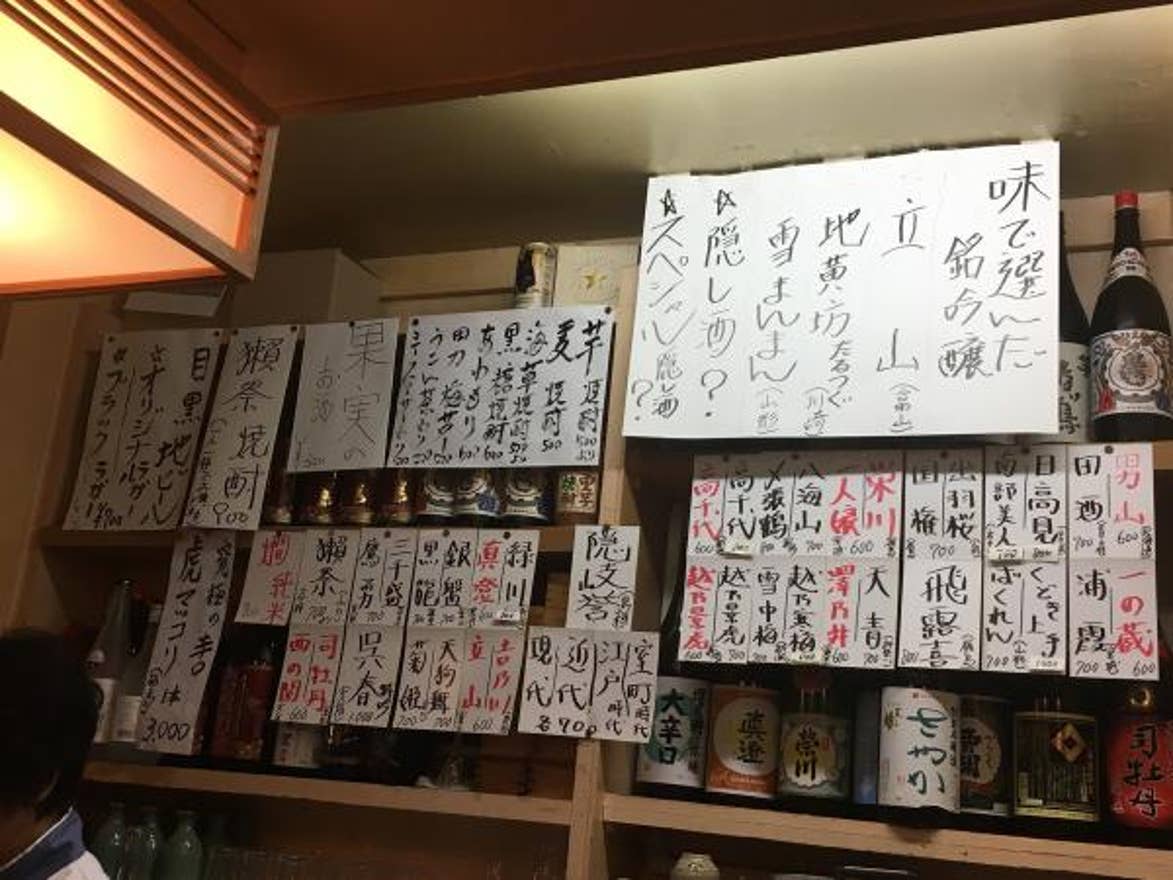 味で選んだ
銘吟醸
立山 (富山)
地黄坊たるつぐ (川崎)
雪まんまん (山形)
☆隠し酒?
☆スペシャル隠し酒?
芋焼酎
麦焼酎 500
海草焼酎
黒糖焼酎
果実入の
お酒
獺祭焼酎 900
目黒地ビール
☆オリジナルラガー
☆ブラックラガー
男山 600
田酒 700
日高見
南部美人
出羽桜
国権 700
栄川
一人娘 600
八海山 700
〆張鶴
高千代
高千代 600
一の蔵 600
浦霞 700
くどき上手
ばくれん 700
飛露喜
天青 700
澤乃井 600
越乃寒梅
雪中梅
越乃景虎
越乃景虎 600
隠岐誉
緑川
真澄
銀盤
黒龍
三千盛
鷹勇
獺祭
純米
吉乃川 600
立山
天狗舞
菊姫 700
呉春
司牡丹
西の関 600
室町時代
江戸時代
近代
現代
各700
究極の辛口
虎マッコリ
3,000
大辛口
真澄
榮川
さわやか
司牡丹